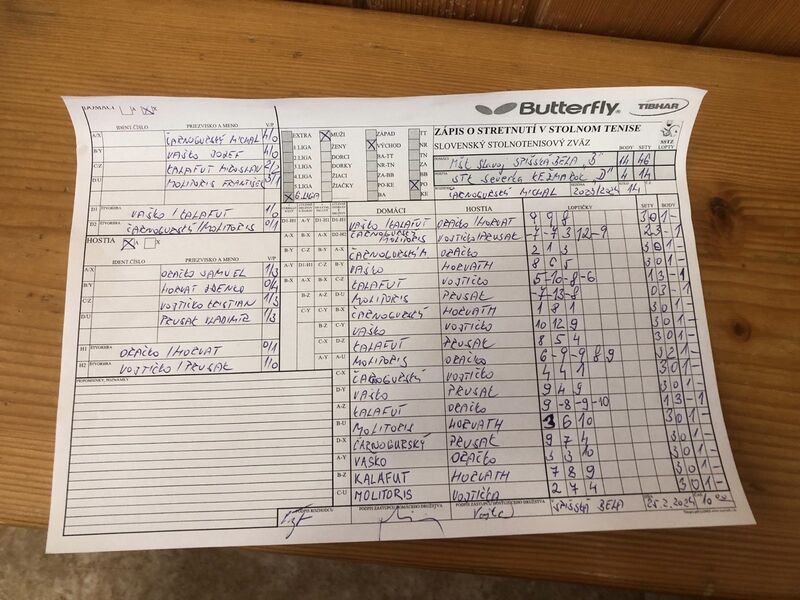 DOMÁCI A X
Butterfly
TIBHAR
IDENT.ČÍSLO PRIEZVISKO A MENO V/P
EXTRA MUŽI ZÁPAD TT
ZÁPIS O STRETNUTÍ V STOLNOM TENISE
A/X ČARNOGURSKÝ MICHAL 4/0
1.LIGA ŽENY VÝCHOD NR
SLOVENSKÝ STOLNOTENISOVÝ ZVÄZ
SSTZ
BODY SETY LOPTY
B/Y VAŠKO JOZEF 4/0
2.LIGA DORCI BA-TT TN
MŠK Slavoj SPIŠSKÁ BELÁ "B" 14 46
C/Z KALAFUT MIROSLAV 2/2
3.LIGA DORKY NR-TN ZA
STK Severka KEŽMAROK "D" 4 14
D/U MOLITORIS FRANTIŠEK 3/1
4.LIGA ŽIACI ZA-BB BB
5.LIGA ŽIAČKY PO-KE PO
6.LIGA KE
ČARNOGURSKÝ MICHAL 2023/2024 14
DOMÁCI HOSTIA LOPTIČKY SETY BODY
D1 ŠTVORHRA VAŠKO / KALAFUT 1/0
D2 ŠTVORHRA ČARNOGURSKÝ / MOLITORIS 0/1
HOSTIA A X
IDENT.ČÍSLO PRIEZVISKO A MENO V/P
A/X ORAČKO SAMUEL 1/3
B/Y HORVAT ZDENKO 0/4
C/Z VOJTIČKO KRISTIAN 1/3
D/U PRUSAK VLADIMÍR 1/3
H1 ŠTVORHRA ORAČKO / HORVAT 0/1
H2 ŠTVORHRA VOJTIČKO / PRUSAK 1/0
PRIPOMIENKY, ROZHODY
D1-H1 VAŠKO / KALAFUT ORAČKO / HORVAT 9 9 8 3 0 1 -
D2-H2 ČARNOGURSKÝ MOLITORIS VOJTIČKO / PRUSAK -7 -7 3 12 -9 2 3 - 1
A-X ČARNOGURSKÝ M ORAČKO 2 1 3 3 0 1 -
B-Y VAŠKO HORVATH 8 6 5 3 0 1 -
C-Z KALAFUT VOJTIČKO 5 -10 -8 -6 1 3 - 1
D-U MOLITORIS PRUSAK -7 -13 -8 0 3 - 1
ČARNOGURSKÝ HORVATH 1 8 1 3 0 1 -
VAŠKO VOJTIČKO 10 12 9 3 0 1 -
KALAFUT PRUSAK 8 5 4 3 0 1 -
A-U MOLITORIS ORAČKO 6 -9 -9 8 9 3 2 1 -
C-X ČARNOGURSKÝ VOJTIČKO 4 4 1 3 0 1 -
D-Y VAŠKO PRUSAK 9 4 9 3 0 1 -
A-Z KALAFUT ORAČKO 9 -8 -9 -10 1 3 - 1
B-U MOLITORIS HORVATH 3 6 10 3 0 1 -
D-X ČARNOGURSKÝ PRUSAK 9 7 4 3 0 1 -
A-Y VAŠKO ORAČKO 3 3 10 3 0 1 -
B-Z KALAFUT HORVATH 7 8 9 3 0 1 -
C-U MOLITORIS VOJTIČKA 2 7 4 3 0 1 -
PODPIS ROZHODCU PODPIS ZÁSTUPCU DOMÁCEHO DRUŽSTVA PODPIS ZÁSTUPCU HOSŤUJÚCEHO DRUŽSTVA
SPIŠSKÁ BELÁ 25.2.2024 10 00